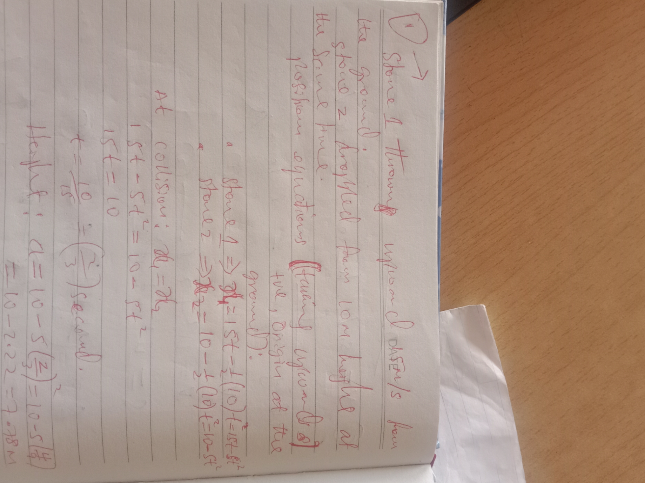 ① → Stone 1 thrown upward at 15 m/s from
the ground.
Stone 2 dropped from 10m height at
the same time.
Positions equations (taking upwards
+ve, origin at the
ground):
• Stone 1 ⇒ x₁ = 15t - 1/2 (10) t² = 15t - 5t²
• Stone 2 ⇒ x₂ = 10 - 1/2 (10) t² = 10 - 5t²
At collision: x₁ = x₂
15t - 5t² = 10 - 5t²
15t = 10
t = 10/15 = (2/3) second.
Height: x = 10 - 5 (2/3)² = 10 - 5 (4/9)
= 10 - 2.22 = 7.78 m